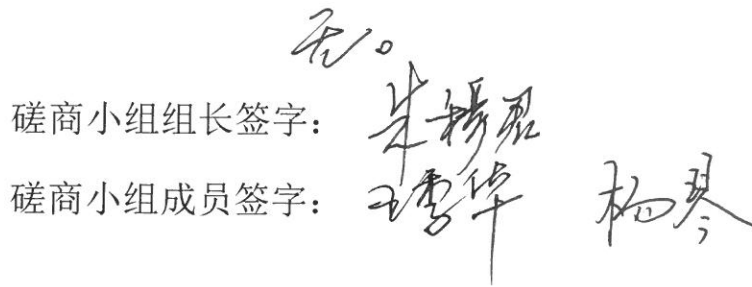 无。
磋商小组组长签字：朱
磋商小组成员签字：王雪华 杨琴